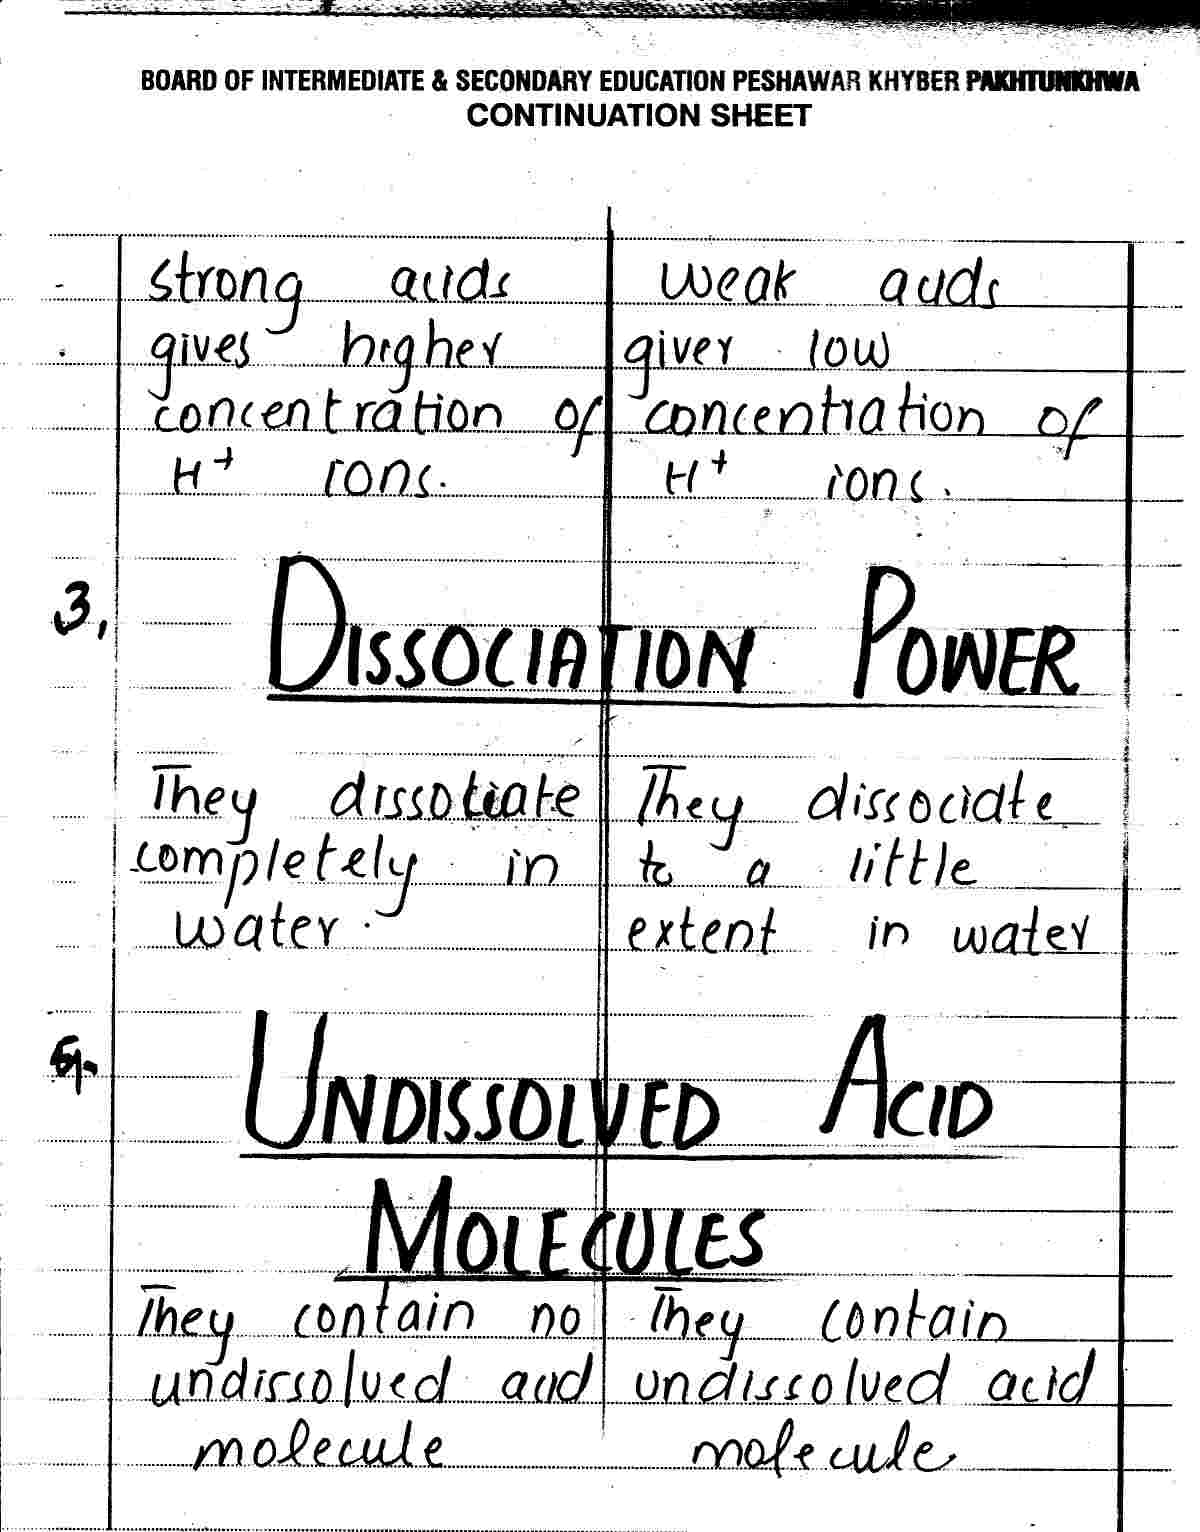 BOARD OF INTERMEDIATE & SECONDARY EDUCATION PESHAWAR KHYBER PAKHTUNKHWA
CONTINUATION SHEET
strong acids
gives higher
concentration of
H+ ions.
weak acids
giver low
concentration of
H+ ions.
3,
DISSOCIATION POWER
They dissociate
completely in
water.
They dissociate
to a little
extent in water
UNDISSOLVED ACID
MOLECULES
They contain no
undissolved acid
molecule
They contain
undissolved acid
molecule.